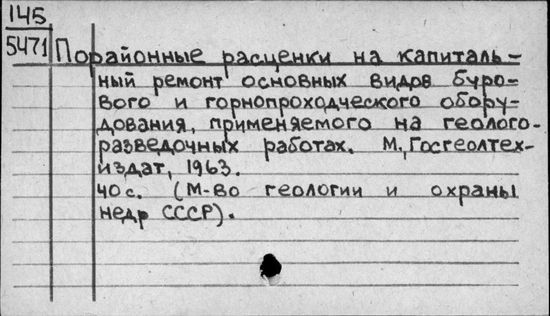 145
5471
Порайонные расценки на капиталь-
ный ремонт основных видов буро-
вого и горнопроходческого обору-
дования, применяемого на геолого-
разведочных работах. М., Госгеолтех-
издат, 1963.
40 с. (М-во геологии и охраны
недр СССР).